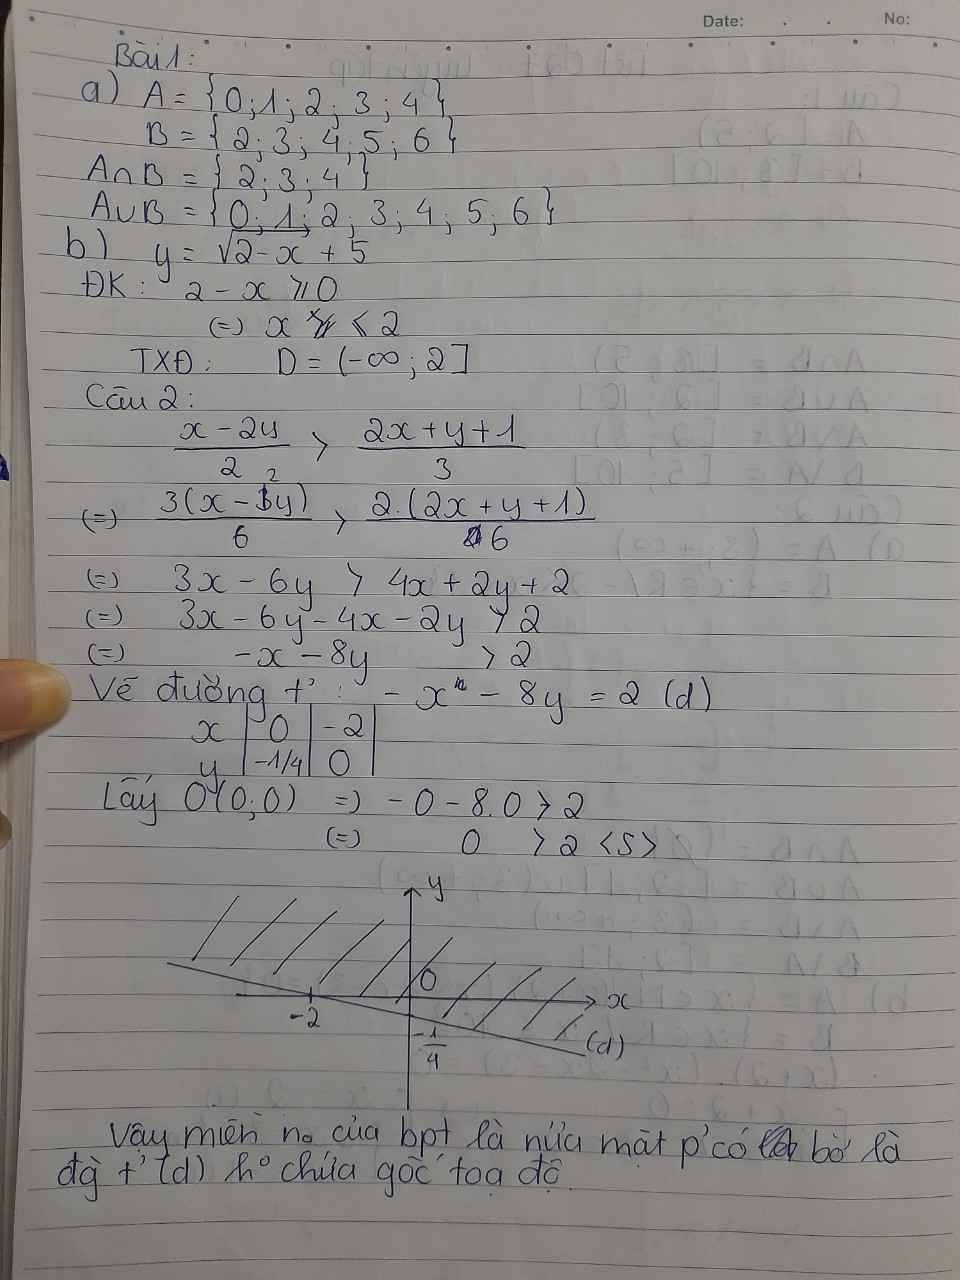 Date: . . No:
Bài 1:
a) A = {0; 1; 2; 3; 4}
B = {2; 3; 4; 5; 6}
A∩B = {2; 3; 4}
A∪B = {0; 1; 2; 3; 4; 5; 6}
b) y = √2-x + 5
ĐK: 2 - x ⩾ 0
(=) x ⩽ 2
TXĐ: D = (-∞; 2]
Câu 2:
x - 2y / 2 > 2x + y + 1 / 3
(=) 3(x - 2y) / 6 > 2.(2x + y + 1) / 6
(=) 3x - 6y > 4x + 2y + 2
(=) 3x - 6y - 4x - 2y > 2
(=) -x - 8y > 2
Vẽ đường t' : - x - 8y = 2 (d)
x | 0 | -2
y | -1/4 | 0
Lấy O(0;0) =) - 0 - 8.0 > 2
(=) 0 > 2 <S>
y
O
x
-2
-1/4
(d)
Vậy miền no của bpt là nửa mặt p' có bờ là
đg t' (d) ho chứa gốc toạ độ.